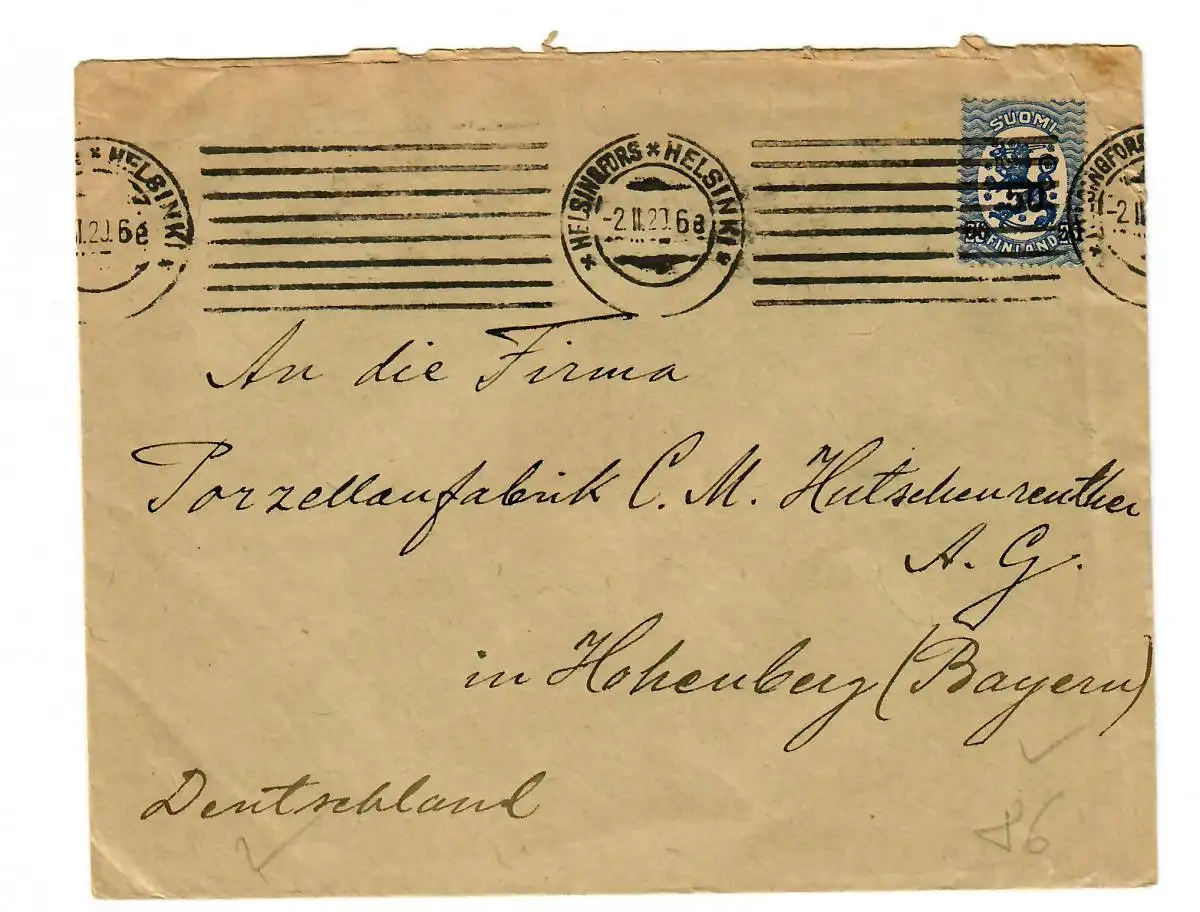 HELSINKI
II.20. 6 e
HELSINGFORS * HELSINKI *
-2.II.20. 6 e
SUOMI
50
20 20
FINLAND
SINGFORS
-2.II
An die Firma
Porzellanfabrik C. M. Hutschenreuther
A. G.
in Hohenberg (Bayern)
Deutschland
86